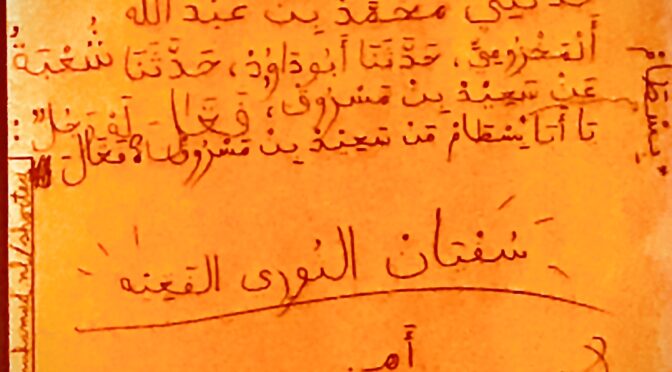 حدثني محمد بن عبد الله
المخرومي، حَدَّثَنَا أَبُو دَاوُدَ، حَدَّثَنَا شُعْبَةُ
عَنْ سَعِيدِ بِنْ مَسْرُوقٍ، فَقَالَ لَهُ رَجُلٌ:
يَا أَبَا بِسْطَامَ مَنْ سَعِيدُ بِنْ مَسْرُوقٍ؟ فَقَالَ
سُفْتَان النُورى الفَقِيه
أَمِي
بسطام